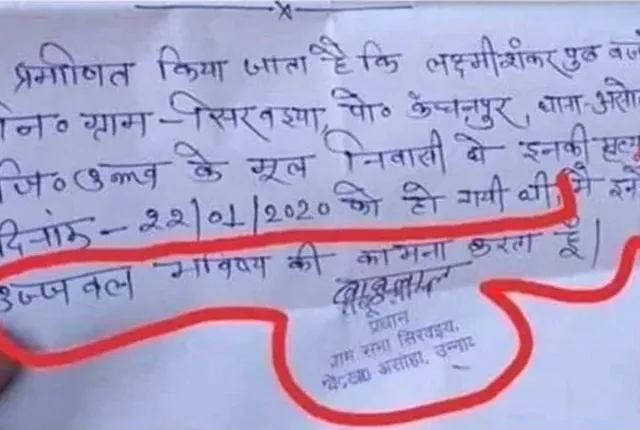 प्रमाणित किया जाता है कि लक्ष्मीशंकर पुत्र
नि० ग्राम - सिरवइया, पो० कंचनपुर, थाना - असो
जि० उन्नाव के मूल निवासी थे इनकी मृत्यु
दिनांक - 22/01/2020 को हो गयी थी, मैं इनके
उज्जवल भविष्य की कामना करता हूँ।
प्रधान
ग्राम सभा सिरवइया,
असोहा, उन्नाव